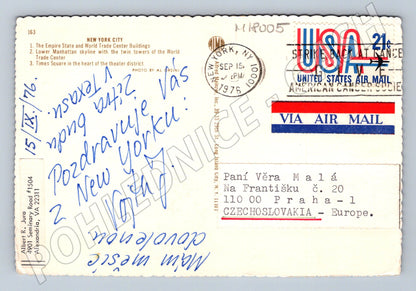 163
NEW YORK CITY
1. The Empire State and World Trade Center Buildings
2. Lower Manhattan skyline with the twin towers of the World
Trade Center
3. Times Square in the heart of the theater district
MHP005
NEW YORK, N.Y. 1000
SEP 15
PM
1976
STRIKE BACK AT CANCER
AMERICAN CANCER SOCIE
USA 21¢
UNITED STATES AIR MAIL
VIA AIR MAIL
15/IX./76.
Pozdravuje Vás
z New Yorku!
Zítra budu
v Texasu.
Mám měsíc
dovolenou
Albert R. Jura
4901 Seminary Road #1504
Alexandria, VA 22311
Paní Věra Malá
Na Františku č. 20
11000 Praha-1
CZECHOSLOVAKIA - Europe.
POHLEDNICE - CECH